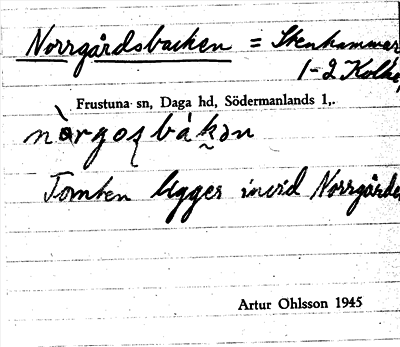 Norrgårdsbacken = Stenhammar
1-2 Kolke
Frustuna sn, Daga hd, Södermanlands l,.
nòrgoʂbákən
Tomten ligger invid Norrgårde
Artur Ohlsson 1945